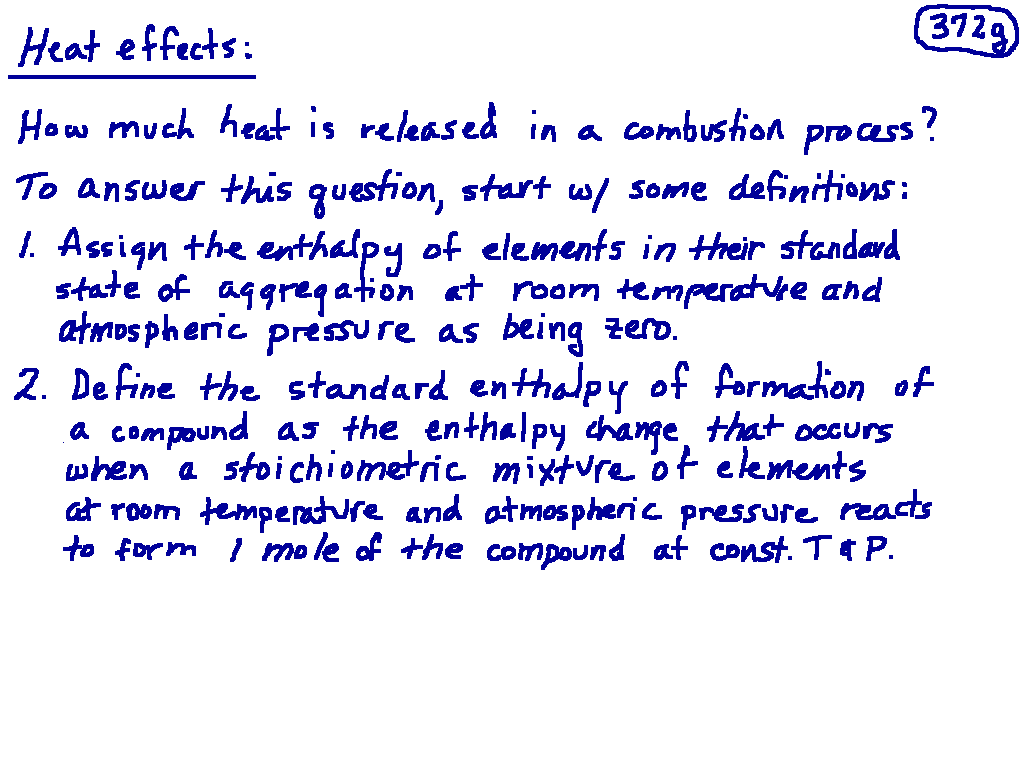 372g
Heat effects:
How much heat is released in a combustion process?
To answer this question, start w/ some definitions:
1. Assign the enthalpy of elements in their standard
state of aggregation at room temperature and
atmospheric pressure as being zero.
2. Define the standard enthalpy of formation of
a compound as the enthalpy change that occurs
when a stoichiometric mixture of elements
at room temperature and atmospheric pressure reacts
to form 1 mole of the compound at const. T & P.